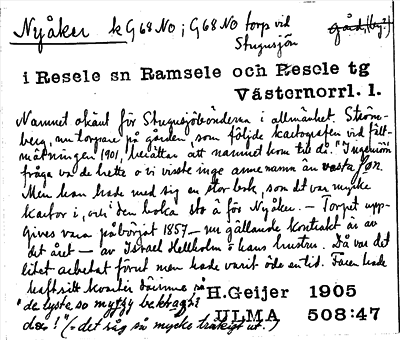 Nyåker k G 68 NO; G 68 NO torp vid
Stugusjön
i Resele sn Ramsele och Resele tg
Västernorrl. l.
Namnet okänt för Stugusjöbönderna i allmänhet. Ström-
berg, nu torpare på gården, som följde kartografen vid fält-
mätningen 1901, berättar att namnet kom till då. "Ingeniörn
fråga va de hette o vi visste inge anne namn än västa sjön.
Men han hade med sig en stor bok, som det var mycke
kartor i, o i den boka sto å för Nyåker. — Torpet upp-
gives vara påbörjat 1857 — nu gällande kontrakt är av
det året — av Israel Hellholm o hans hustru. Då var det
litet arbetat förut men hade varit öde en tid. Faren hade
haft sitt kontrakt
"de lyste so mytjy
H.Geijer 1905
dä!" (= det såg så mycke tråkigt ut.)
ULMA 508:47